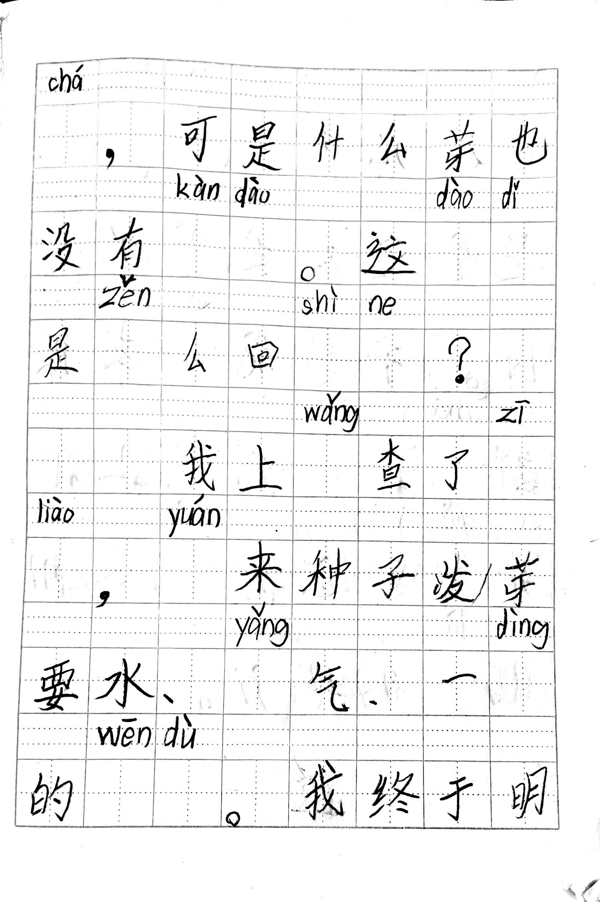 chá
，可是什么芽也
kàn dào dào dǐ
没有。这
zěn shì ne
是么回？
wǎng zī
我上查了
liào yuán
，来种子发芽
yǎng dìng
要水、气、一
wēn dù
的。我终于明